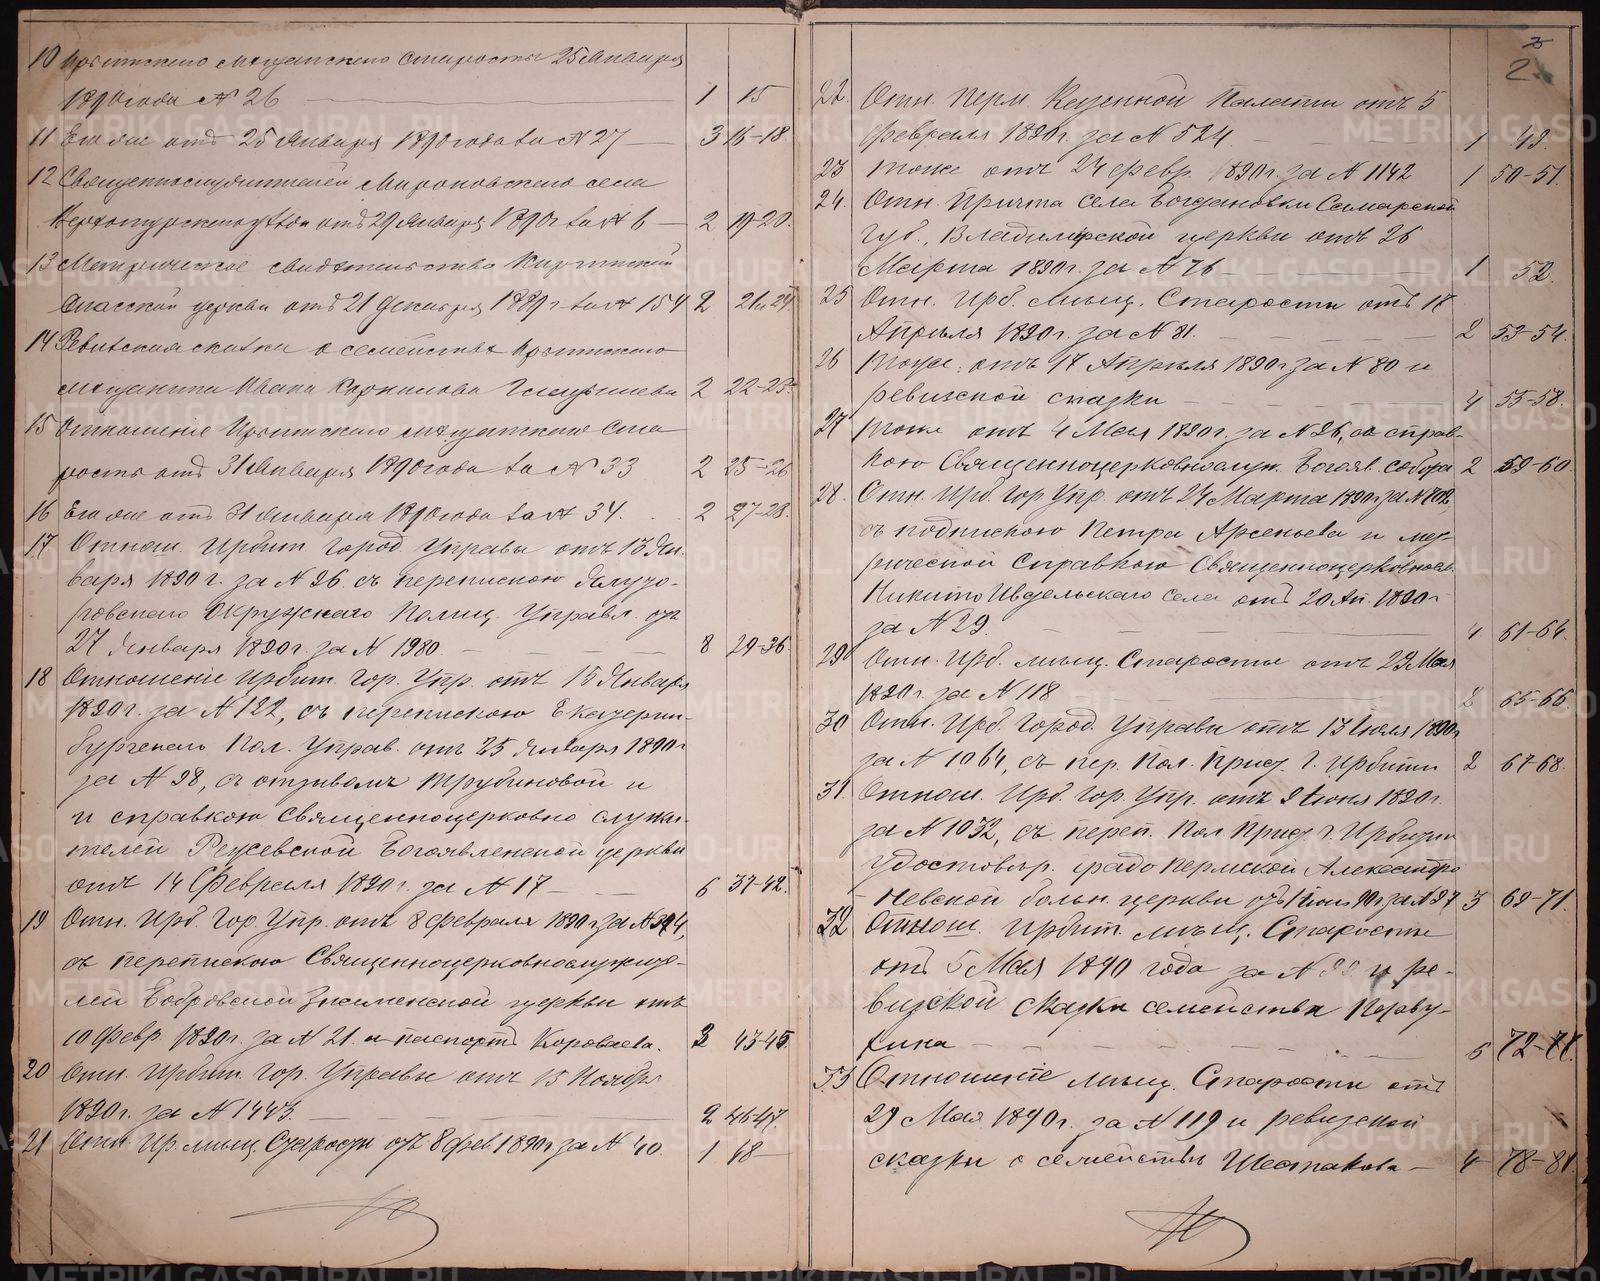 10 Ирбитского мещанского старосты 25 Января
1890 года № 26 — 1 15
11 Его же отъ 25 Января 1890 года за № 27 — 3 16-18.
12 Священнослужителей Мироновского села
Верхотурского уѣзда отъ 29 Января 1890 г за № 6 — 2 19-20.
13 Метрическое свидѣтельство Киргишанской
Спасской церкви отъ 21 Декабря 1889 г за № 154 2
14 Ревизская сказка о семействѣ Ирбитского
мещанина Ивана 2 22-23.
15 Отношение Ирбитского мещанского Ста
росты отъ 31 Января 1890 года за № 33 2 25-26
16 Его же отъ 31 Января 1890 года за № 34. 2 27-28.
17 Отнош. Ирбит. Город. Управы отъ 13 Ян.
варя 1890 г. за № 26 съ перепискою Ялуто-
ровскаго Окружнаго Полиц. Управл. отъ
27 Января 1890 г. за № 1980 — 8 29-36.
18 Отношеніе Ирбит. Гор. Упр. отъ 15 Января
1890 г. за № 122, съ перепискою Екатерин-
бургскаго Пол. Управ. отъ 25 Января 1890 г
за № 98, съ отзывомъ Трубиновой и
и справкою Священноцерковно служи-
телей Режевской Богоявленской церкви
отъ 14 Февраля 1890 г. за № 17 — 6 37-42.
19 Отн. Ирб. Гор. Упр. отъ 8 Февраля 1890 г за № 394,
съ перепискою Священноцерковнослужите-
лей Бобровской Знаменской церкви отъ
10 Февр. 1890 г. за № 21. и паспортъ Короваева. 3 43-45.
20 Отн. Ирбит. Гор. Управы отъ 15 Ноября
1890 г. за № 1443. — 2 46-47.
21 Отн. Ир. мѣщ. Старосты отъ 8 фев. 1890 г за № 40. 1 48 —
2.
22. Отн. Перм. Казенной Палаты отъ 5
февраля 1890 г. за № 524 — 1 49.
23 тоже отъ 24 февр. 1890 г. за № 1142 1 50-51.
24. Отн. Причта села Богдановки Самарской
губ., Владимірской церкви отъ 26
Марта 1890 г. за № 76 — 1 52.
25 Отн. Ирб. мѣщ. Старосты отъ 18
Апрѣля 1890 г. за № 81. — 2 53-54.
26 тоже. отъ 17 Апрѣля 1890 г за № 80 и
ревизской сказки — 4 55-58.
27 тоже отъ 4 Мая 1890 г. за № 26, со справ-
кою Священноцерковнослуж. Богояв. собора 2 59-60.
28. Отн. Ирб. Гор. Упр. отъ 24 Марта 1890 г за № 702,
съ подпискою Петра Арсеньева и мет-
рической справкою Священноцерковносл.
Никито Ивдельскаго села отъ 20 Ап. 1890 г
за № 29. — 4 61-64.
29 Отн. Ирб. мѣщ. Старосты отъ 29 Мая
1890 г. за № 118 — 2 65-66.
30 Отн. Ирб. Город. Управы отъ 13 Іюля 1890 г
за № 1064, съ пер. Пол. Прист. г. Ирбити 2 67-68.
31. Отнош. Ирб. Гор. Упр. отъ 9 Іюня 1890 г.
за № 1032, съ переп. Пол. Прист. г. Ирбити и
удостовѣр. градо Пермской Александро
Невской больн. церкви отъ 1 Іюн. 90 г. за № 27 3 69-71.
32 Отнош. Ирбит. мѣщ. Старосты
отъ 5 Мая 1890 года за № 99 и ре-
визской сказки семейства Перву-
хина — 6 72-77.
33 Отношеніе мѣщ. Старосты отъ
29 Мая 1890 г. за № 119 и ревизской
сказки о семействѣ Шестакова — 4 78-81
METRIKI.GASO-URAL.RU